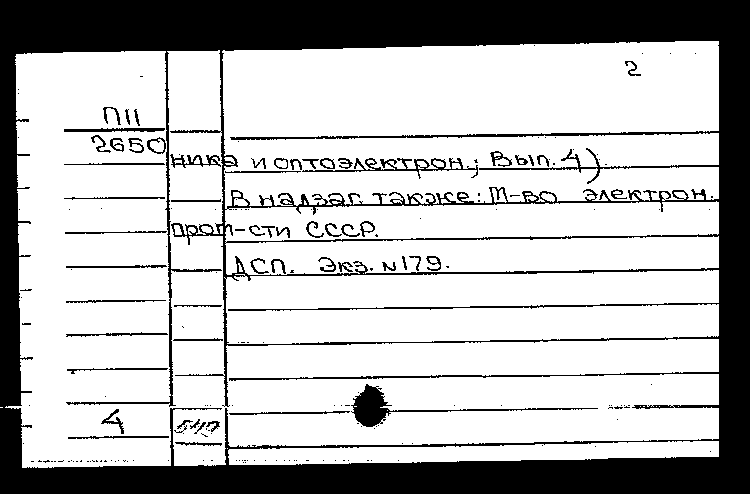 2
П11
2650
ника и оптоэлектрон.; Вып. 4).
В надзаг. также: М-во электрон.
пром-сти СССР.
ДСП. Экз. №179.
4